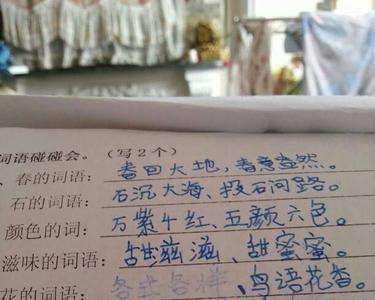 词语碰碰会。（写2个）
、春的词语：春回大地，春意盎然。
石的词语：石沉大海、投石问路。
颜色的词：万紫千红、五颜六色。
滋味的词语：甜滋滋、甜蜜蜜。
花的词语：各式各样、鸟语花香。